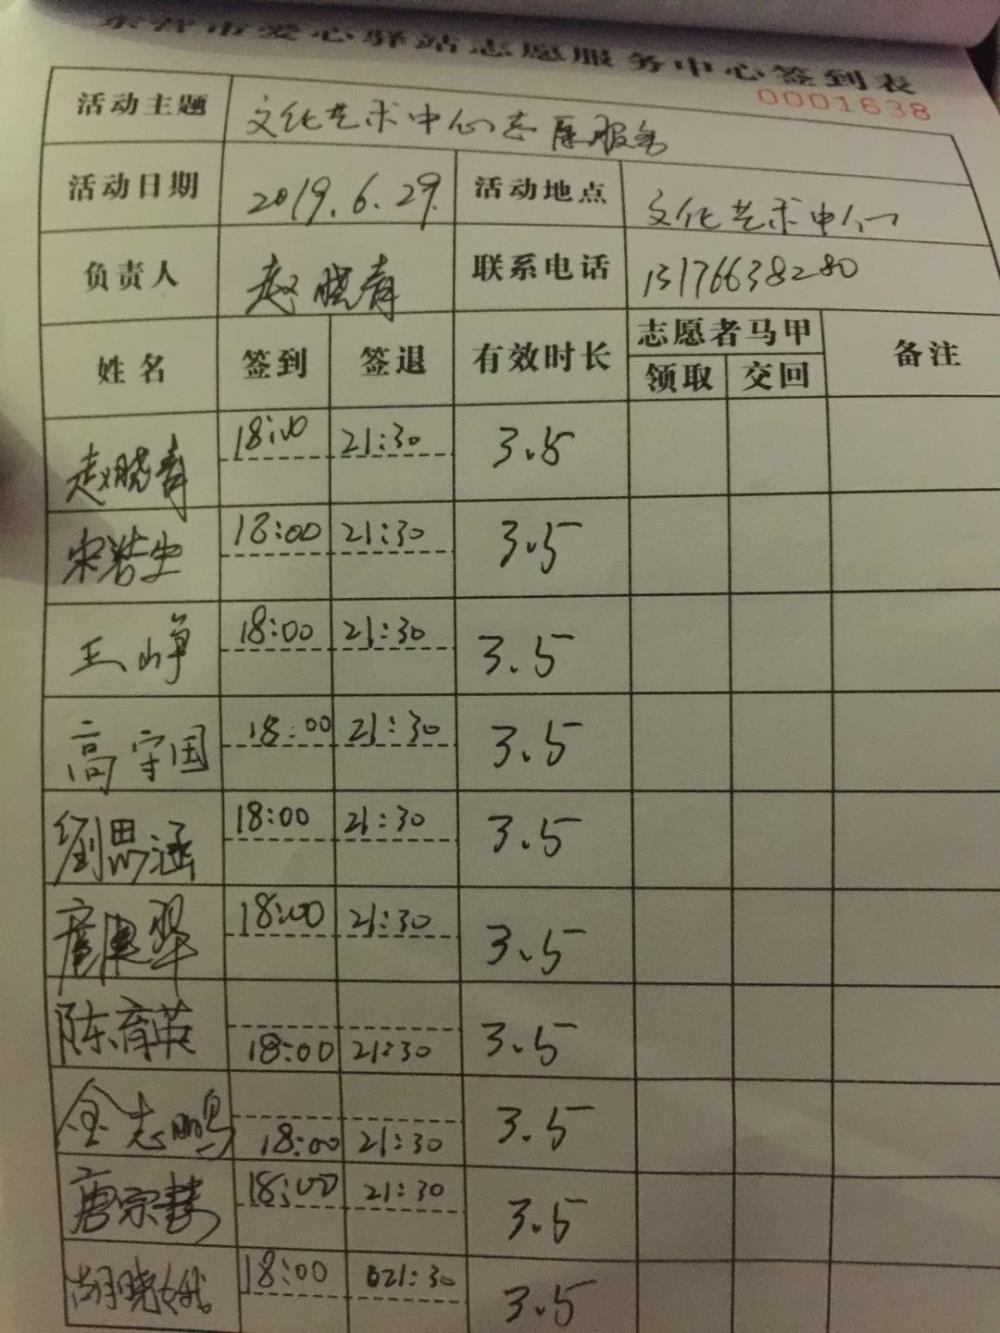 东营市爱心驿站志愿服务中心签到表
0001638
活动主题 文化艺术中心志愿服务
活动日期 2019.6.29. 活动地点 文化艺术中心
负责人 赵晓青 联系电话 13176638280
姓名 签到 签退 有效时长 志愿者马甲 领取 交回 备注
赵晓青 18:00 21:30 3.5
宋 18:00 21:30 3.5
王峥 18:00 21:30 3.5
高守国 18:00 21:30 3.5
刘思涵 18:00 21:30 3.5
18:00 21:30 3.5
陈育英 18:00 21:30 3.5
金志鹏 18:00 21:30 3.5
唐宗慧 18:00 21:30 3.5
胡晓娥 18:00 21:30 3.5